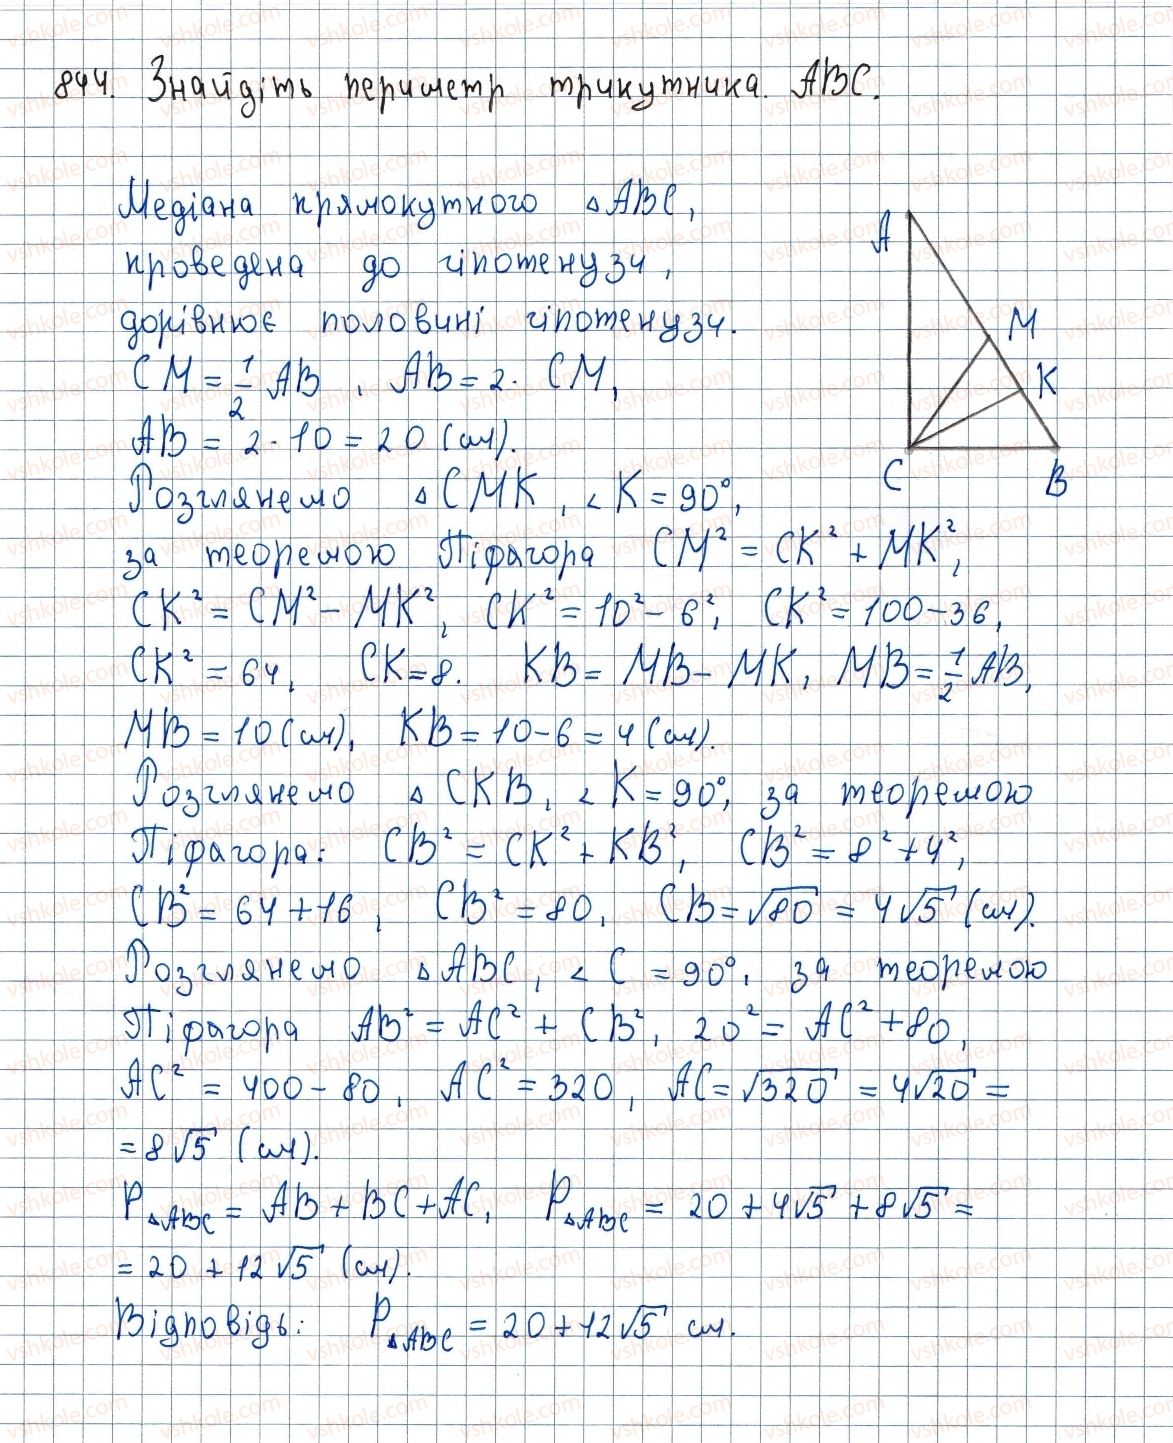 844. Знайдіть периметр трикутника ABC.
Медіана прямокутного △ABC,
проведена до гіпотенузи,
дорівнює половині гіпотенузи.
A
M
K
C
B
CM = 1/2 AB, AB = 2 · CM,
AB = 2 · 10 = 20 (см).
Розглянемо △CMK, ∠K = 90°,
за теоремою Піфагора CM² = CK² + MK²,
CK² = CM² - MK², CK² = 10² - 6², CK² = 100 - 36,
CK² = 64, CK = 8. KB = MB - MK, MB = 1/2 AB,
MB = 10 (см), KB = 10 - 6 = 4 (см).
Розглянемо △CKB, ∠K = 90°, за теоремою
Піфагора: CB² = CK² + KB², CB² = 8² + 4²,
CB² = 64 + 16, CB² = 80, CB = √80 = 4√5 (см).
Розглянемо △ABC, ∠C = 90°, за теоремою
Піфагора AB² = AC² + CB², 20² = AC² + 80,
AC² = 400 - 80, AC² = 320, AC = √320 = 4√20 =
= 8√5 (см).
P△ABC = AB + BC + AC, P△ABC = 20 + 4√5 + 8√5 =
= 20 + 12√5 (см).
Відповідь: P△ABC = 20 + 12√5 см.
vshkole.com